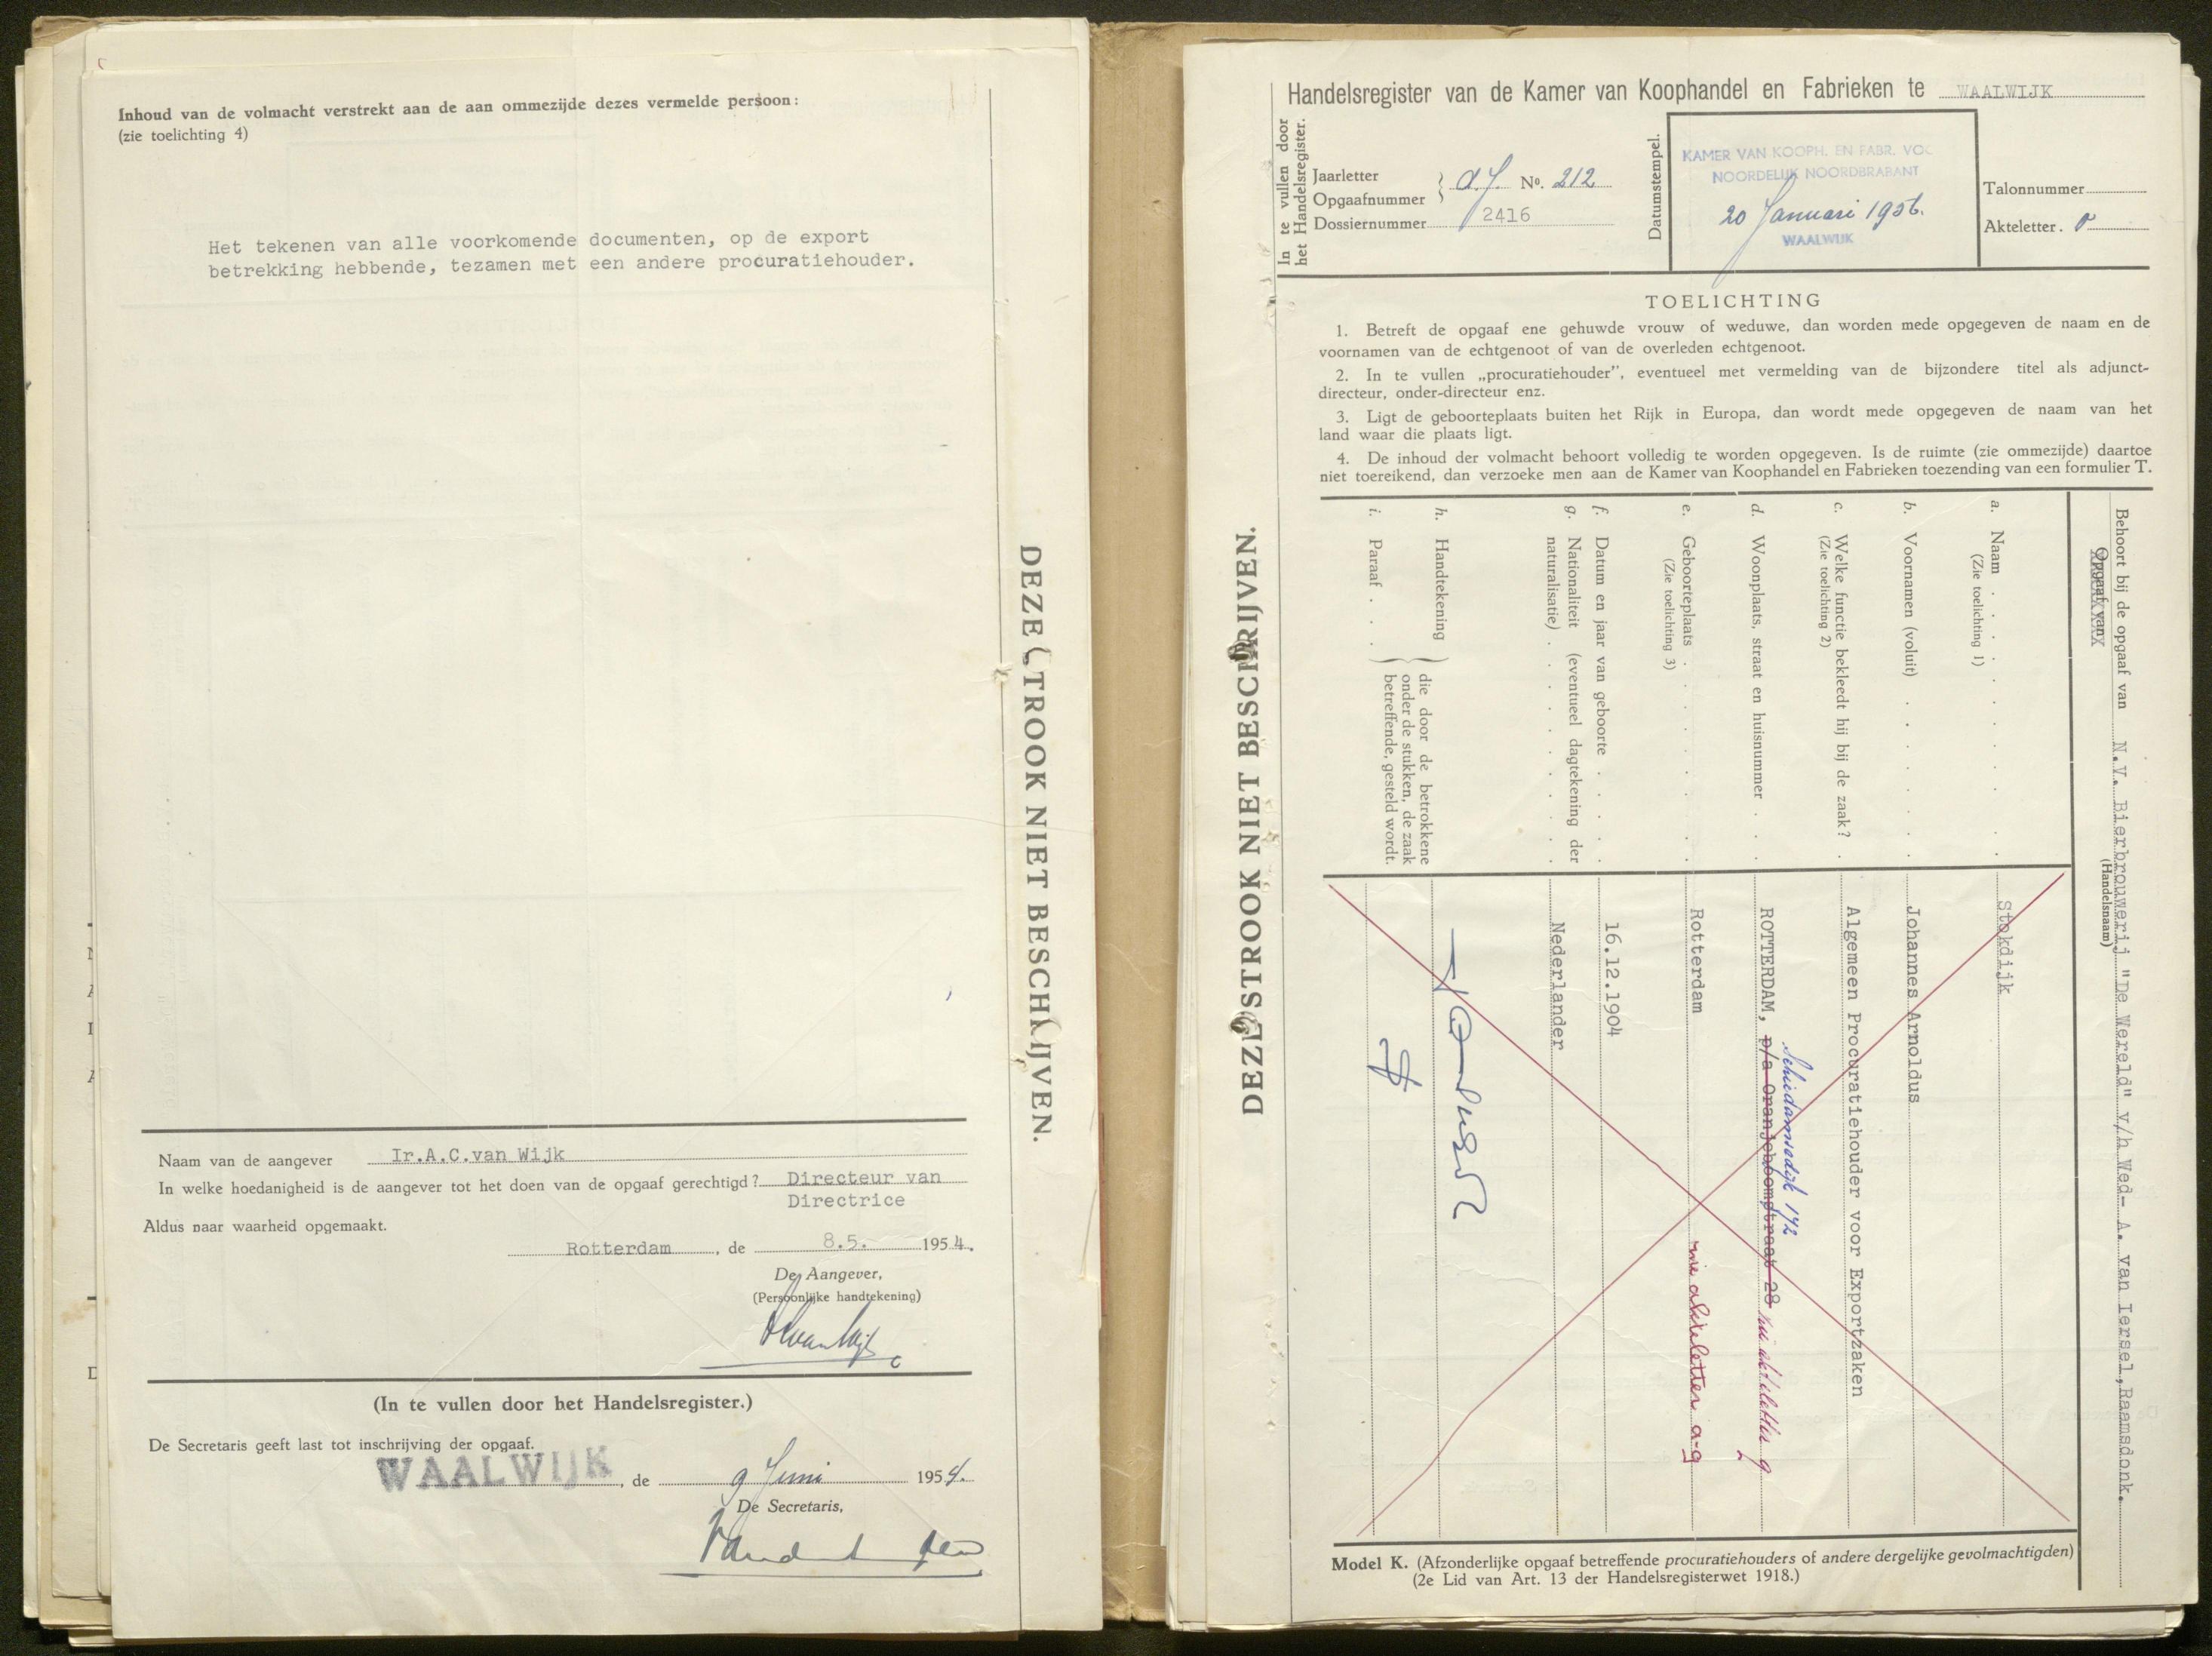 Inhoud van de volmacht verstrekt aan de aan ommezijde dezes vermelde persoon:
(zie toelichting 4)
Het tekenen van alle voorkomende documenten, op de export
betrekking hebbende, tezamen met een andere procuratiehouder.
Naam van de aangever Ir.A.C.van Wijk
In welke hoedanigheid is de aangever tot het doen van de opgaaf gerechtigd? Directeur van
Directrice
Aldus naar waarheid opgemaakt.
Rotterdam, de 8.5. 1954.
De Aangever,
(Persoonlijke handtekening)
(In te vullen door het Handelsregister.)
De Secretaris geeft last tot inschrijving der opgaaf.
WAALWIJK, de 9 Juni 1954.
De Secretaris,
DEZE STROOK NIET BESCHRIJVEN.
DEZE STROOK NIET BESCHRIJVEN.
Handelsregister van de Kamer van Koophandel en Fabrieken te WAALWIJK
In te vullen door
het Handelsregister.
Jaarletter
Opgaafnummer
No. 212
Dossiernummer 2416
Datumstempel.
KAMER VAN KOOPH. EN FABR. VOO
NOORDELIJK NOORDBRABANT
20 Januari 1956.
WAALWIJK
Talonnummer
Akteletter.
TOELICHTING
1. Betreft de opgaaf ene gehuwde vrouw of weduwe, dan worden mede opgegeven de naam en de
voornamen van de echtgenoot of van de overleden echtgenoot.
2. In te vullen „procuratiehouder”, eventueel met vermelding van de bijzondere titel als adjunct-
directeur, onder-directeur enz.
3. Ligt de geboorteplaats buiten het Rijk in Europa, dan wordt mede opgegeven de naam van het
land waar die plaats ligt.
4. De inhoud der volmacht behoort volledig te worden opgegeven. Is de ruimte (zie ommezijde) daartoe
niet toereikend, dan verzoeke men aan de Kamer van Koophandel en Fabrieken toezending van een formulier T.
Behoort bij de opgaaf van N.V. Bierbrouwerij "De Wereld" v/h Wed- A. van Iersel, Raamsdonk.
Opgaaf van
(Handelsnaam)
a. Naam Stokdijk
(Zie toelichting 1)
b. Voornamen (voluit) Johannes Arnoldus
c. Welke functie bekleedt hij bij de zaak? Algemeen Procuratiehouder voor Exportzaken
(Zie toelichting 2)
Schiedamsedijk 172
d. Woonplaats, straat en huisnummer ROTTERDAM, p/a Oranjeboomstraat 28 zie akteletter q
e. Geboorteplaats Rotterdam zie akteletter a-g
(Zie toelichting 3)
f. Datum en jaar van geboorte 16.12.1904
g. Nationaliteit (eventueel dagtekening der
naturalisatie) Nederlander
h. Handtekening
i. Paraaf
die door de betrokkene
onder de stukken, de zaak
betreffende, gesteld wordt.
Model K. (Afzonderlijke opgaaf betreffende procuratiehouders of andere dergelijke gevolmachtigden)
(2e Lid van Art. 13 der Handelsregisterwet 1918.)